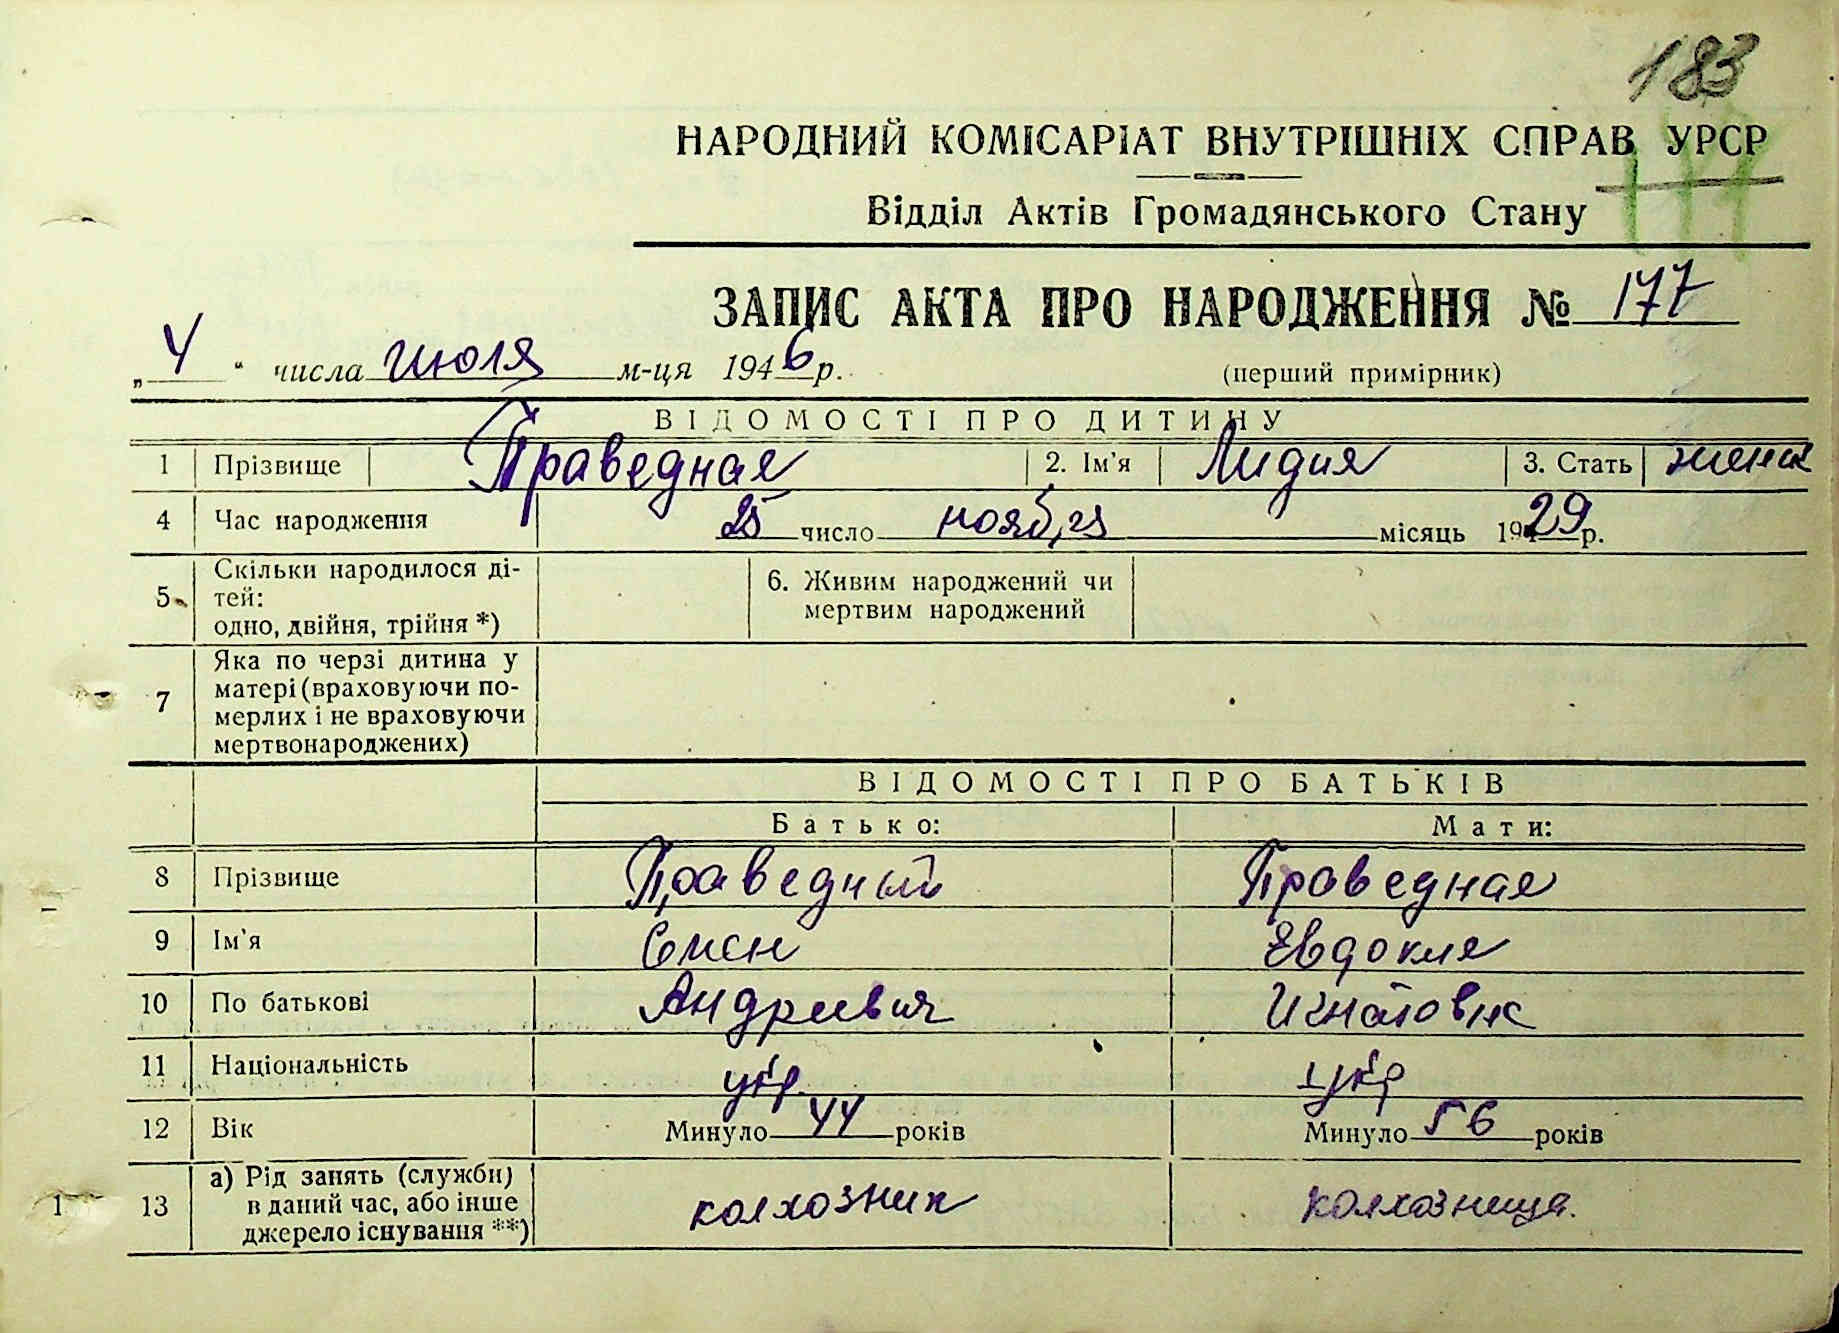 183
НАРОДНИЙ КОМІСАРІАТ ВНУТРІШНІХ СПРАВ УРСР
Відділ Актів Громадянського Стану
ЗАПИС АКТА ПРО НАРОДЖЕННЯ № 177
„ 4 “ числа июля м-ця 1946 р. (перший примірник)
ВІДОМОСТІ ПРО ДИТИНУ
1 Прізвище Праведная 2. Ім'я Лидия 3. Стать женск
4 Час народження 25 число ноября місяць 1929 р.
5 Скільки народилося ді-
тей:
одно, двійня, трійня *)
6. Живим народжений чи
мертвим народжений
7 Яка по черзі дитина у
матері (враховуючи по-
мерлих і не враховуючи
мертвонароджених)
ВІДОМОСТІ ПРО БАТЬКІВ
Батько: Мати:
8 Прізвище Праведный Праведная
9 Ім'я Семен Евдокия
10 По батькові Андреевич Игнатовна
11 Національність укр. укр
12 Вік Минуло 44 років Минуло 56 років
13 а) Рід занять (служби)
в даний час, або інше
джерело існування **)
колхозник колхозница.